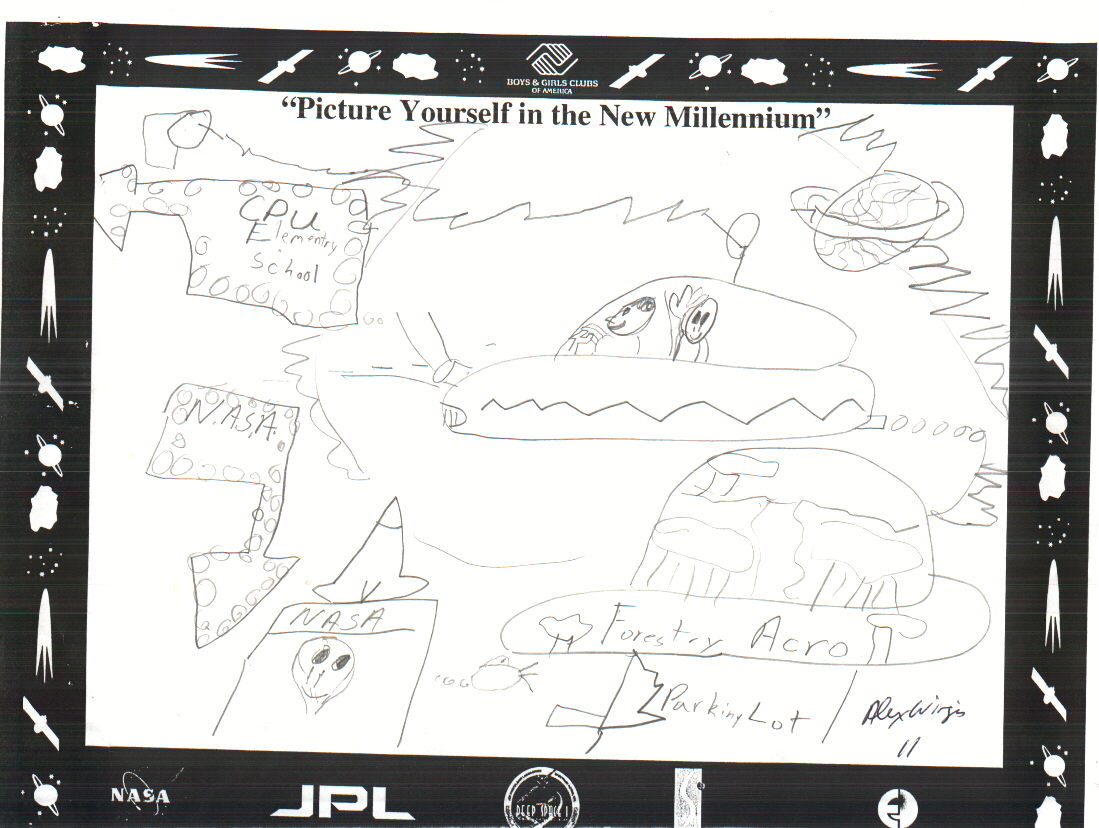 BOYS & GIRLS CLUBS
OF AMERICA
“Picture Yourself in the New Millennium”
CPU
Elementry
School
N.A.S.A.
NASA
Forestry Acro
Parking Lot
11
NASA
JPL
DEEP SPACE 1